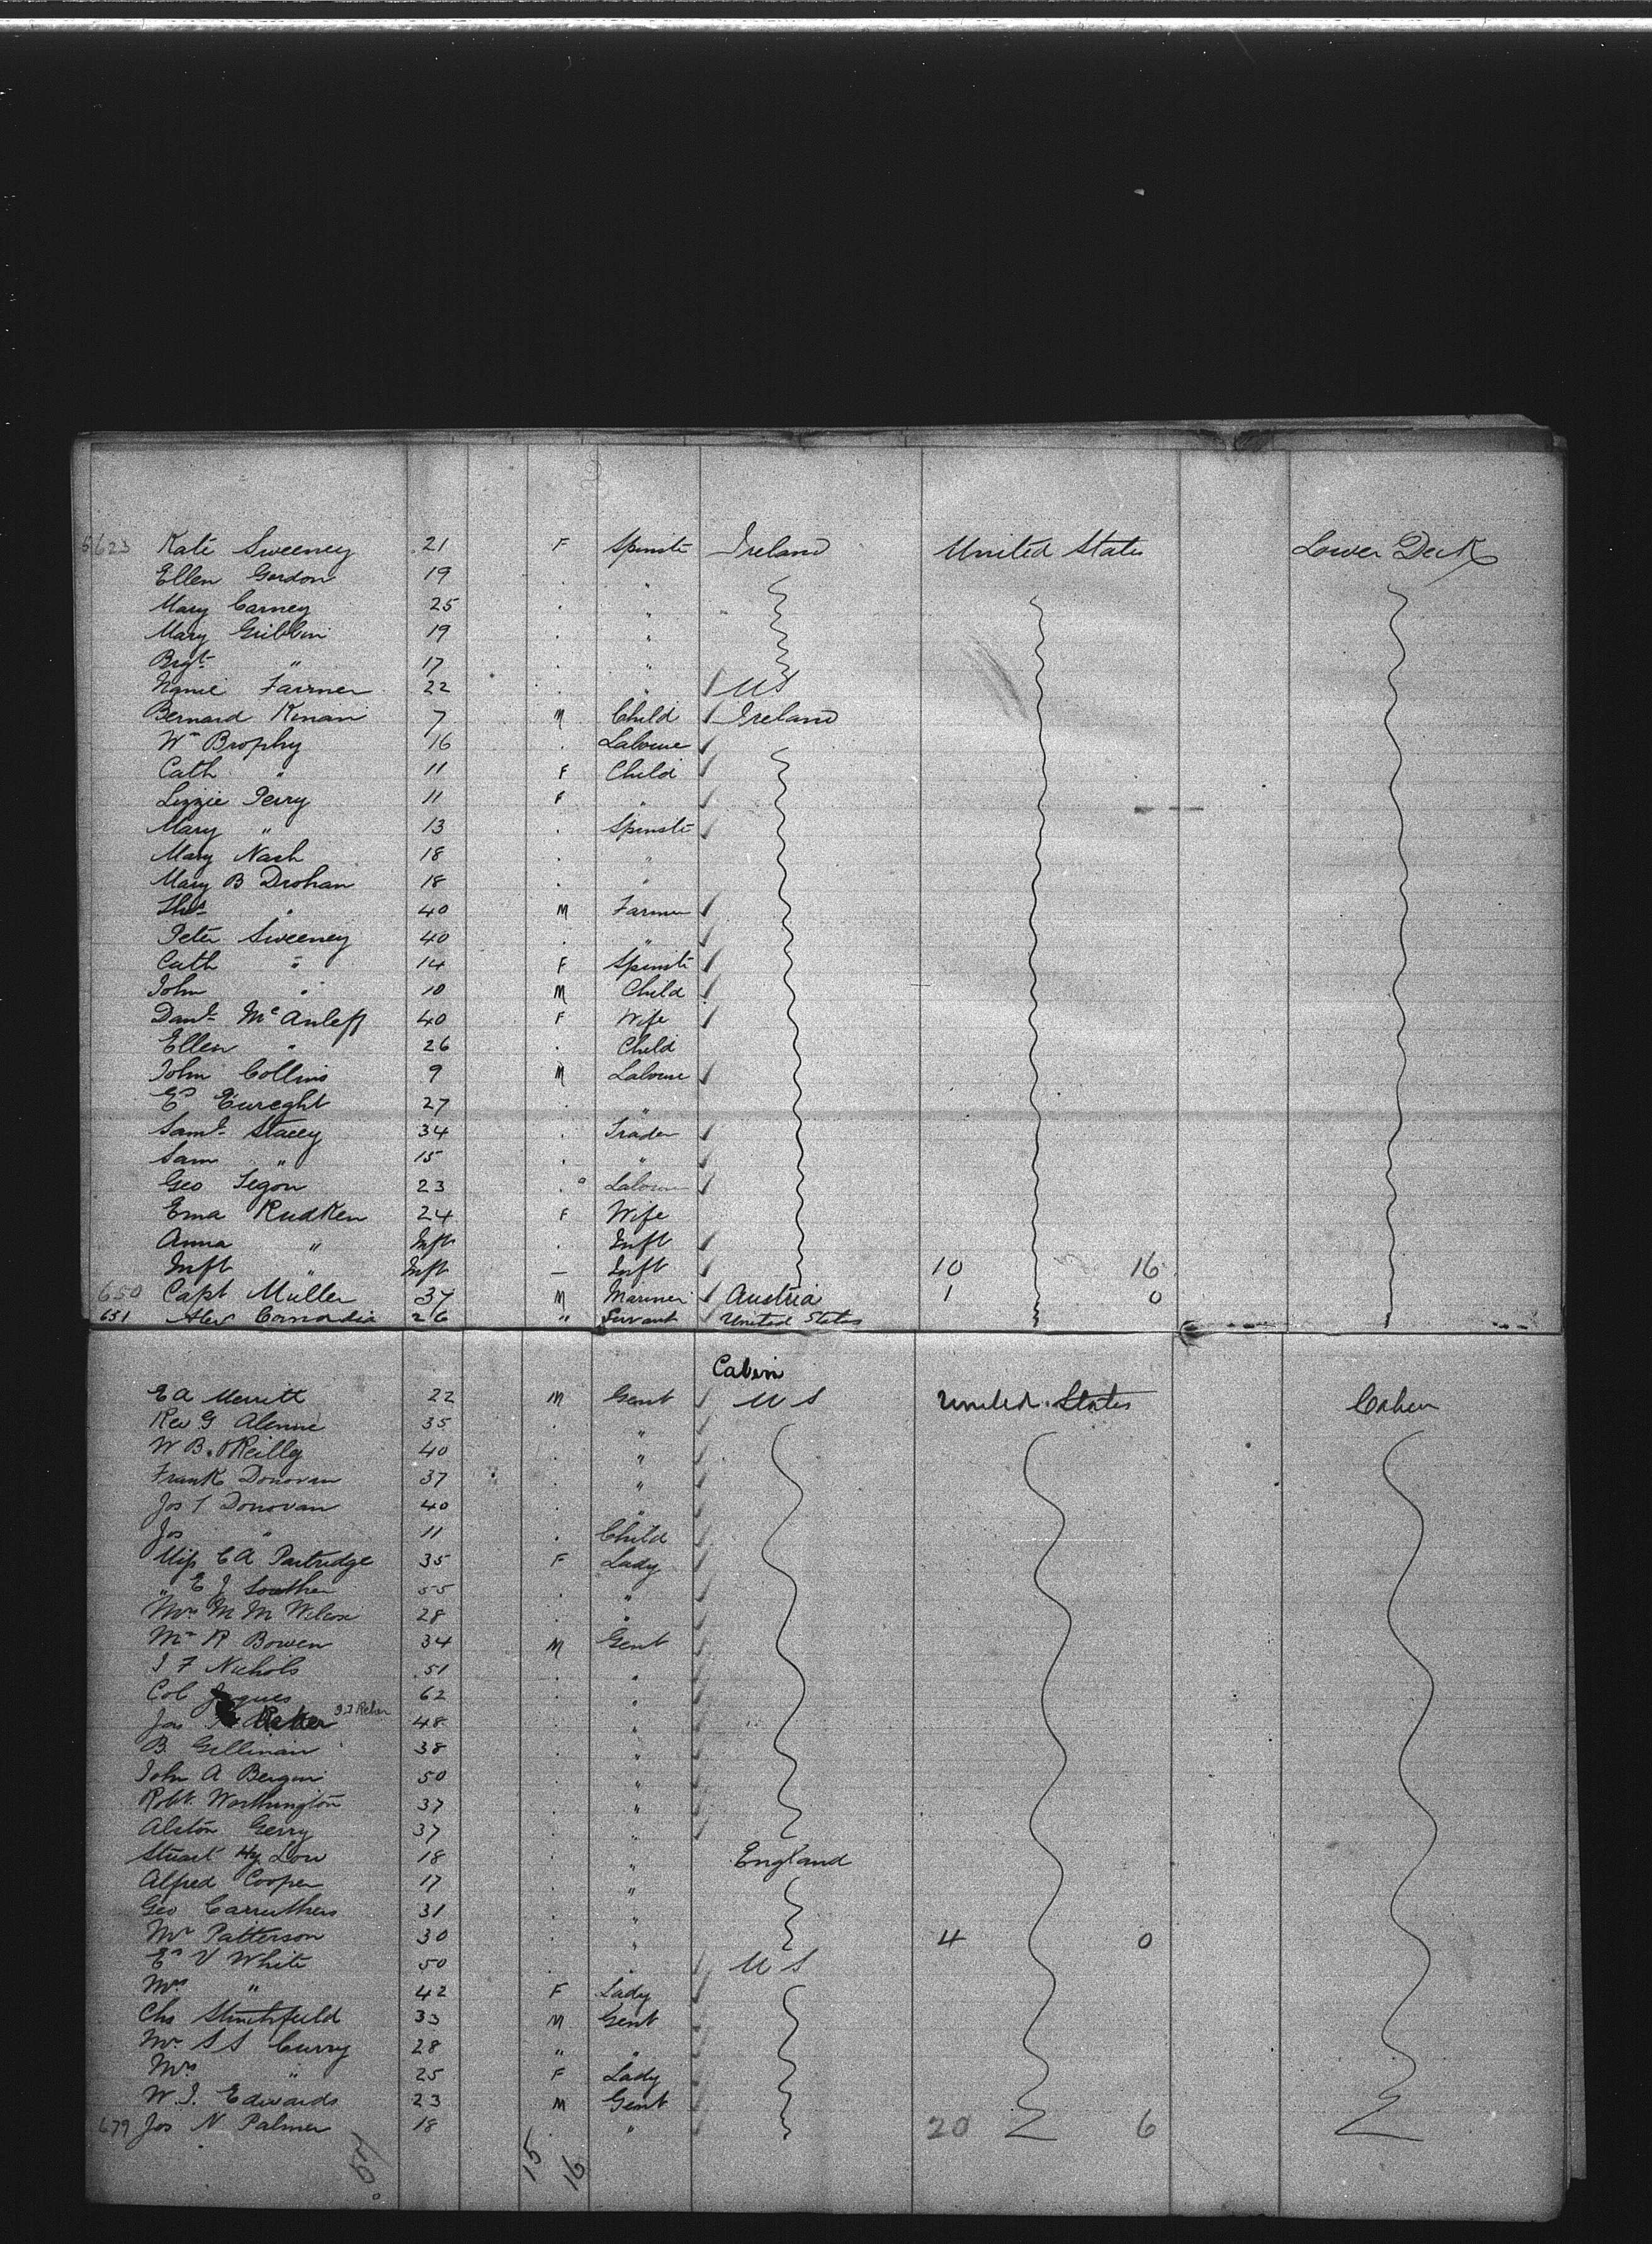 623 Kate Sweeney 21 F Spinstr Ireland United States Lower Deck
Ellen Gordon 19 . "
Mary Carney 25 . "
Mary Gribbin 19 . "
Brgt " 17 . "
Nanie Farrmer 22 . " U S
Bernard Kenan 7 M Child Ireland
Wm Brophy 16 . Laboure
Cath " 11 F Child
Lizzie Perry 11 F "
Mary " 13 . Spinstr
Mary Nash 18 . "
Mary B Drohan 18 . "
Thos " 40 M Farmer
Peter Sweeney 40 . "
Cath " 14 F Spinstr
John " 10 M Child
Danl 40 F Wife
Ellen " 26 . Child
John Collins 9 M Laboure
Ed Eureght 27 . "
Saml Stacey 34 . Trader
Sam " 15 . "
Geo Segon 23 . " Labour
Ema Rudken 24 F Wife
Anna " Inft . Inft
Inft " Inft — Inft 10 16
650 Capt Muller 37 M Mariner Austria 1 0
651 Alex 26 " Servant United States
Cabin
E A Merritt 22 M Gent U S United States Cabin
Rev G 35 . "
W B. OReilly 40 . "
Frank Donovan 37 . "
Jos T Donovan 40 . "
Jos " 11 . Child
Miss E A Partridge 35 F Lady
" E J Souther 55 . "
Mrs M M Wilcox 28 . "
Mr R Bowen 34 M Gent
J F Nichols 51 . "
Col Jaques 62 . "
Jas Reker 48 . "
B. Gillman 38 . "
John A Bergin 50 . "
Robt. Worthington 37 . "
Alston Gerry 37 . "
Stuart Hy Low 18 . " England
Alfred Cooper 17 . "
Geo Carruthers 31 . "
Mr Patterson 30 . " 4 0
Ed V White 50 . . U S
Mrs " 42 F Lady
Chs Stinchfield 33 M Gent
Mr. S S Curry 28 " "
Mrs " 25 F Lady
W. J. Edwards 23 M Gent
679 Jos N Palmer 18 . " 20 6
15
16